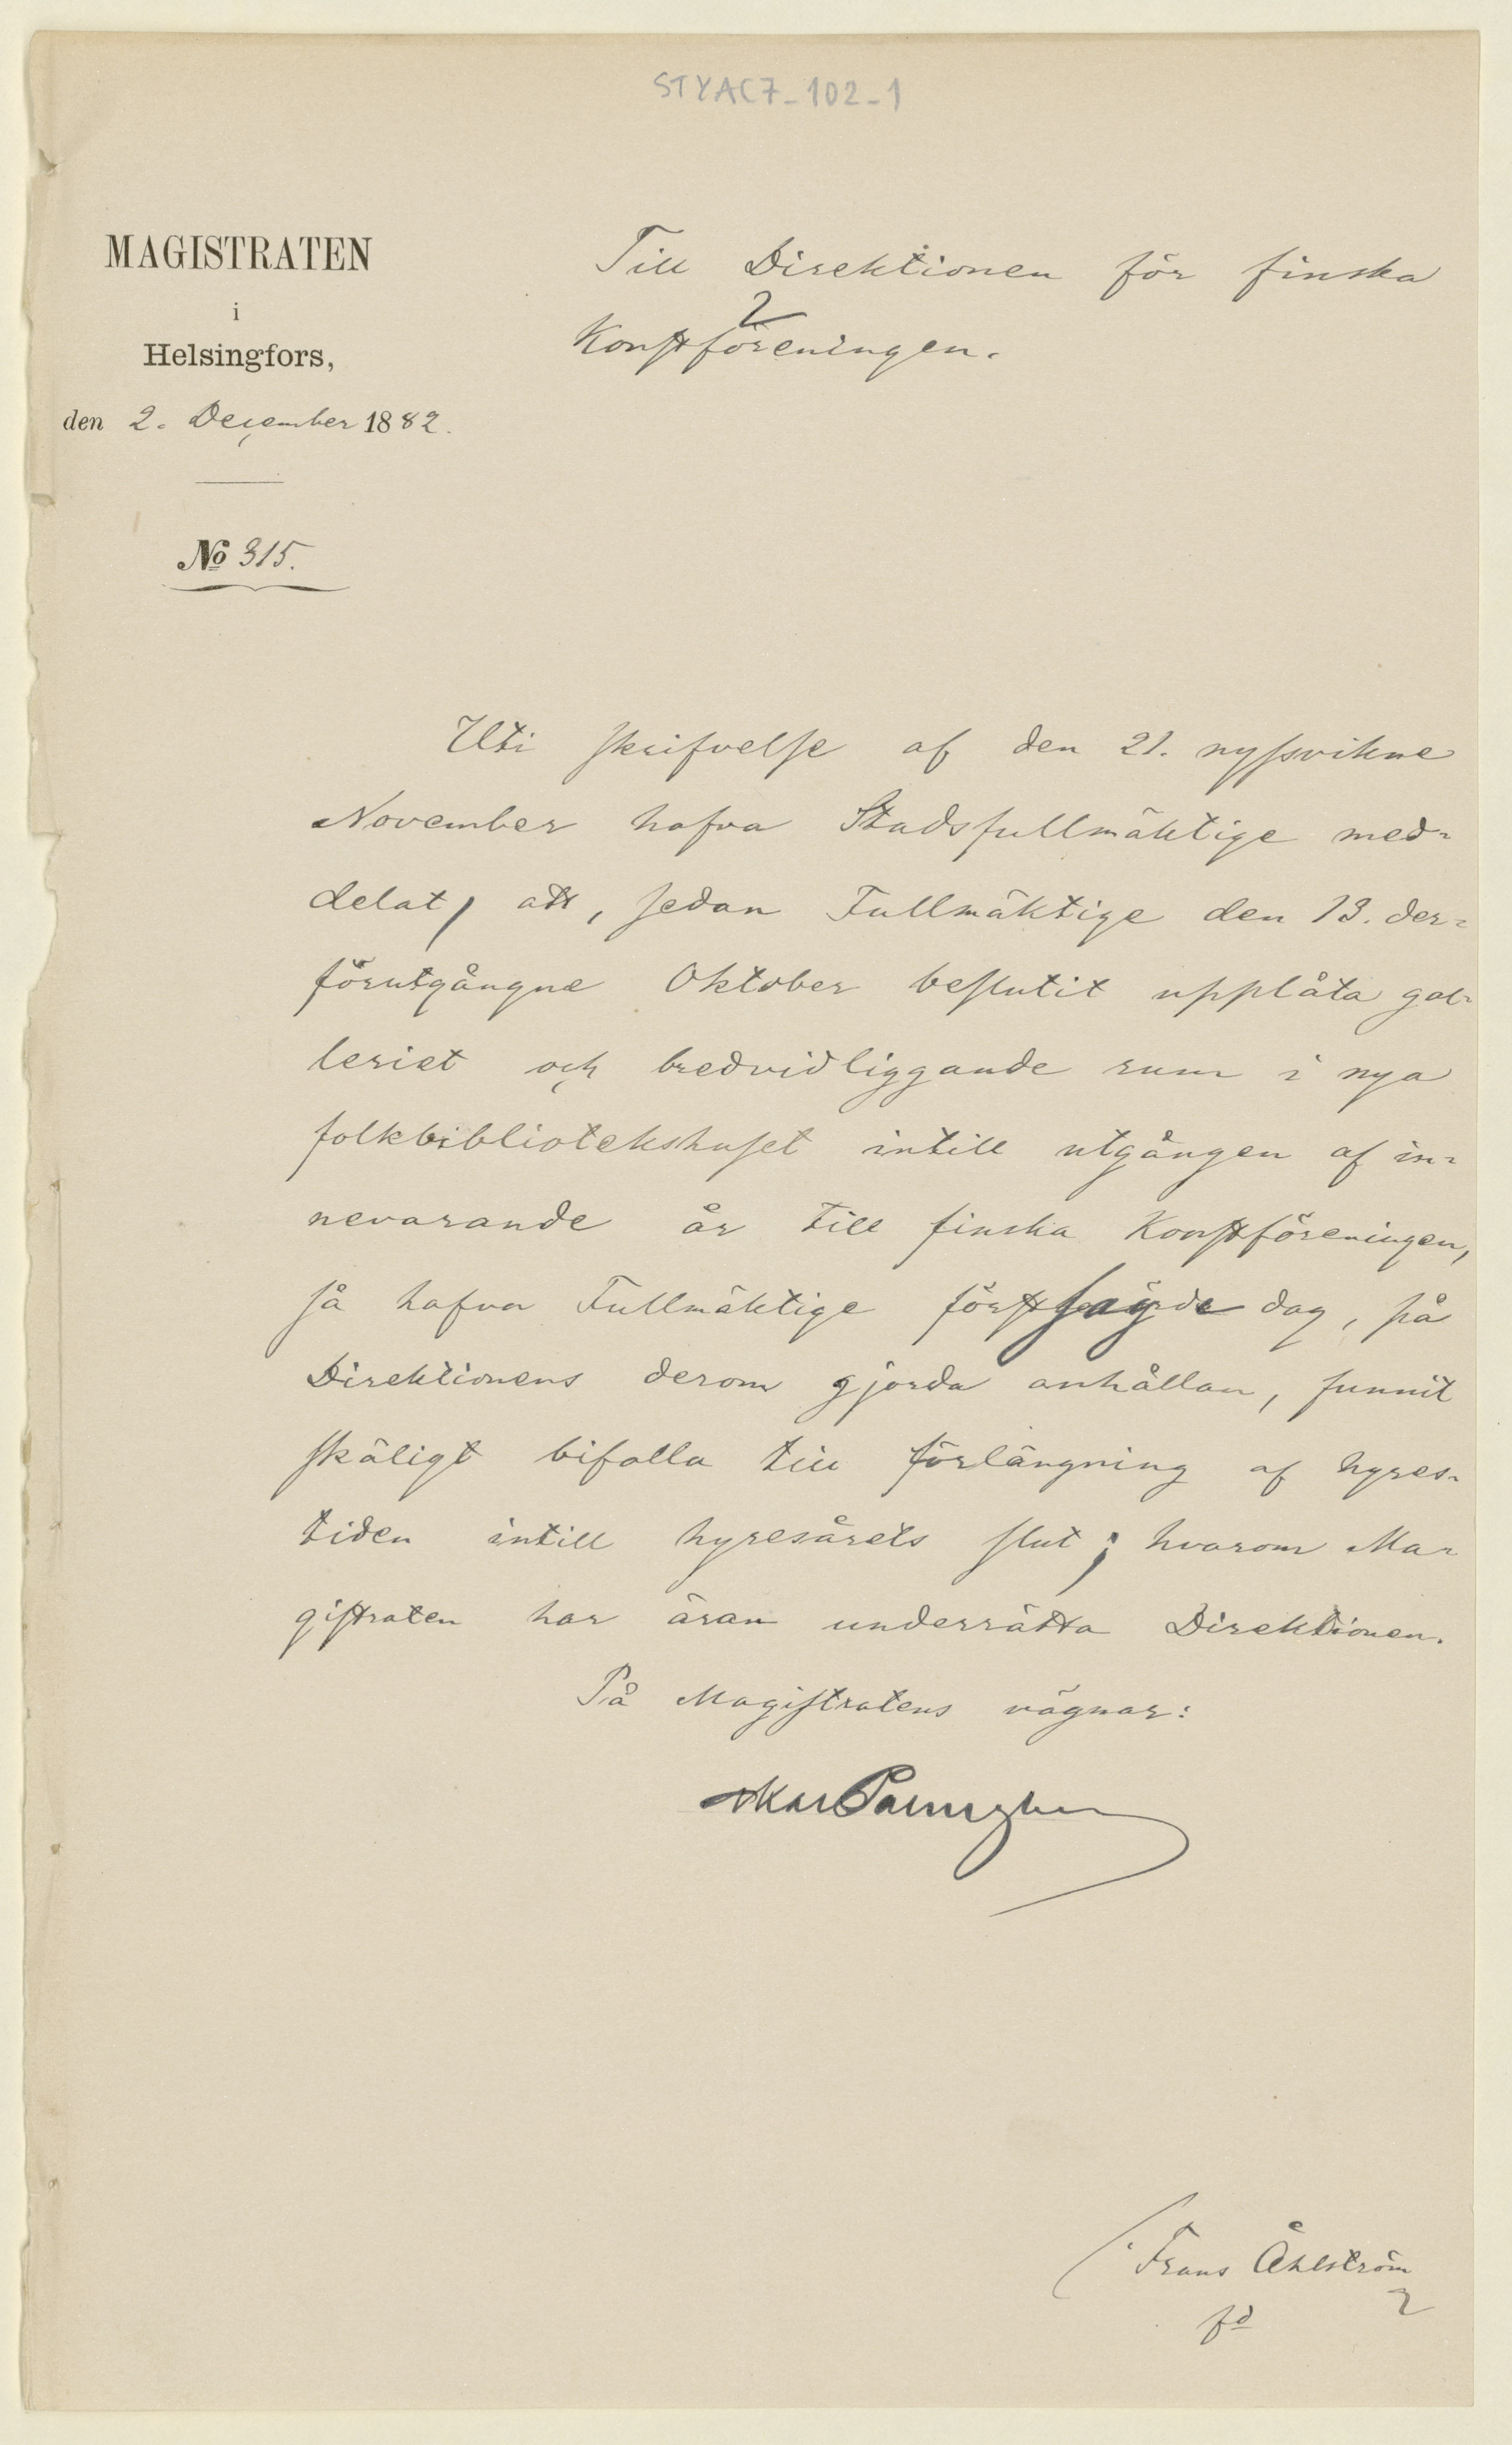 STYAC7-102-1
MAGISTRATEN
i
Helsingfors,
den 2. December 1882.
No 315.
Till Direktionen för finska
Konstföreningen.
Uti skrifvelse af den 21. nyssvikne
November hafva Stadsfullmäktige med-
delat, att, sedan Fullmäktige den 13. der-
förutgångne Oktober beslutit upplåta gal-
leriet och bredvidliggande rum i nya
folkbibliotekshuset intill utgången af in-
nevarande år till finska Konstföreningen,
så hafva Fullmäktige förstsagde dag, på
Direktionens derom gjorda anhållan, funnit
skäligt bifalla till förlängning af hyres-
tiden intill hyresårets slut; hvarom Ma-
gistraten har äran underrätta Direktionen.
På Magistratens vägnar:
Frans Åhlström
fd